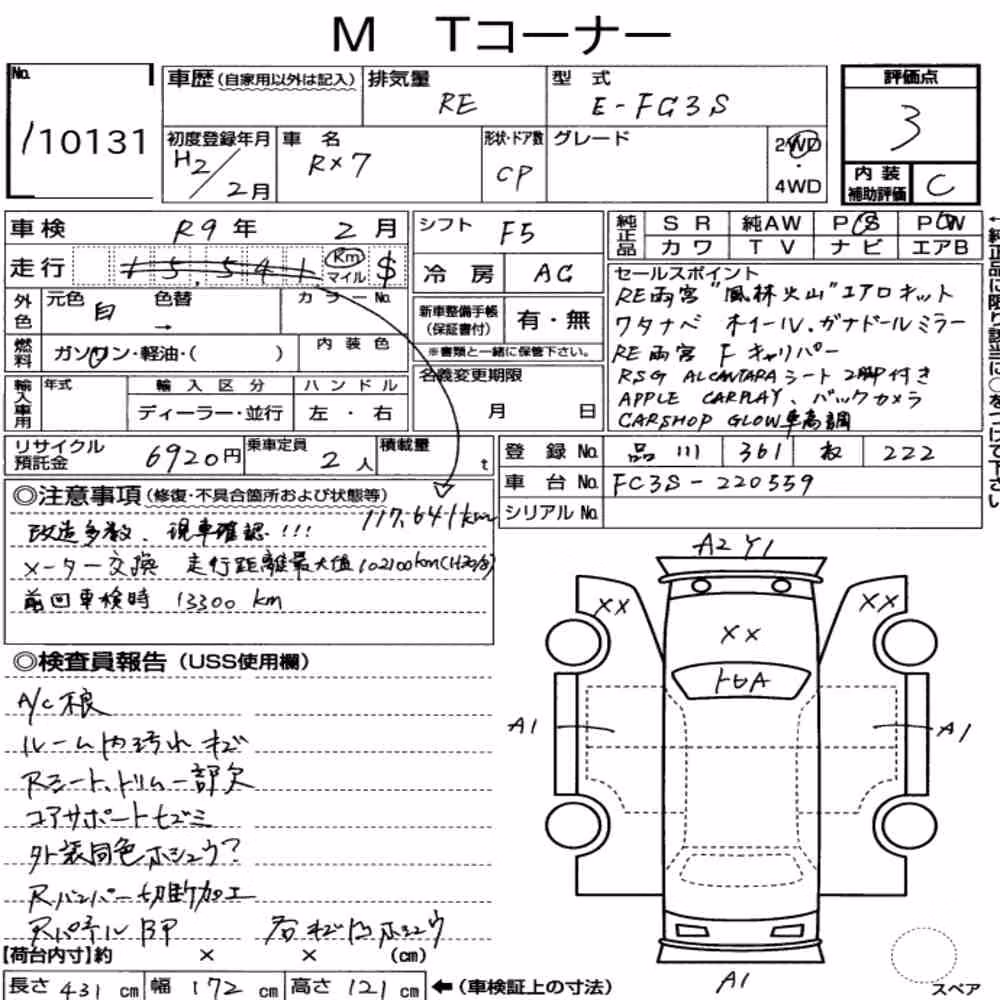 M Tコーナー
No.
110131
車歴(自家用以外は記入)
排気量
RE
型式
E-FC3S
評価点
3
初度登録年月
H2/2月
車名
RX7
形状・ドア数
CP
グレード
2WD
・
4WD
内装
補助評価
C
車検 R9年 2月
シフト F5
純正品
SR 純AW PS PW
カワ TV ナビ エアB
走行 15,541 Km マイル $
冷房 AC
外色 元色 白 色替 → カラーNo.
燃料 ガソリン・軽油・( ) 内装色
新車整備手帳
(保証書付)
有・無
※書類と一緒に保管下さい。
セールスポイント
RE雨宮"風林火山"エアロキット
ワタナベ ホイール、ガナドールミラー
RE雨宮 F キャリパー
RSG ALCANTARAシート 2脚付き
APPLE CARPLAY、バックカメラ
CARSHOP GLOW車高調
←純正品に限り該当に○をつけて下さい
輸入車用 年式 輸入区分 ハンドル
ディーラー・並行 左・右
名義変更期限
月 日
リサイクル
預託金
6920円
乗車定員
2人
積載量
t
登録No. 品川 361 222
車台No. FC3S-220559
シリアルNo.
◎注意事項(修復・不具合箇所および状態等)
117,641km
改造多数、現車確認!!!
メーター交換 走行距離最大値102100km
前回車検時 13300km
◎検査員報告(USS使用欄)
A/C不良
ルーム内汚れ キズ
Rシート、トリム一部欠
コアサポートセズミ
外装同色ホシュウ?
Rバンパー切断加工
Rパネル BP
ホシュウ
A2 Y1
XX
XX
XX
トビA
A1
A1
A1
スペア
【荷台内寸】約 × × (cm)
長さ 431 cm 幅 172 cm 高さ 121 cm ←(車検証上の寸法)